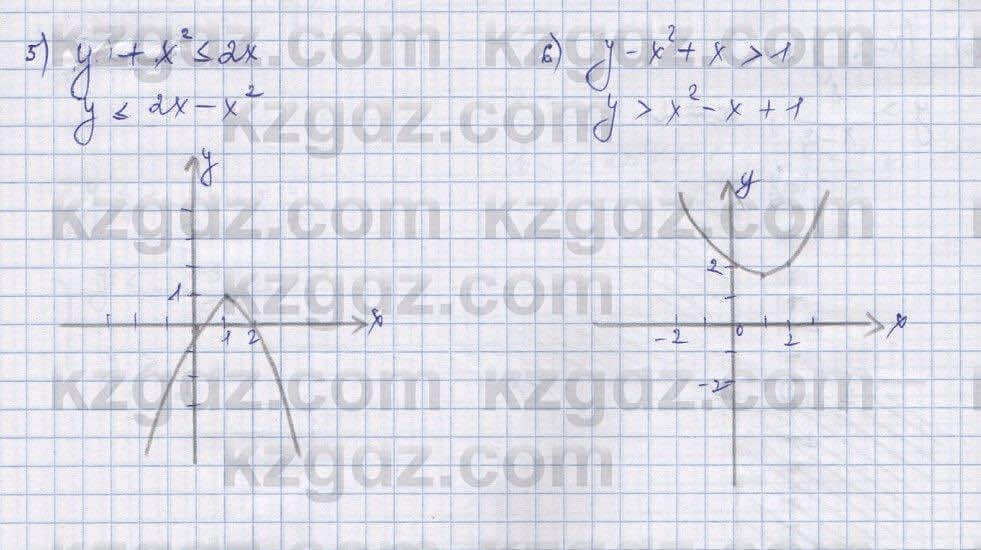 5) y + x² ≤ 2x
y ≤ 2x - x²
6) y - x² + x > 1
y > x² - x + 1
y
1
1 2
x
y
2
-2 0 2
x
-2
kzgdz.com kzgdz.com
kzgdz.com kzgdz.com
kzgdz.com
kzgdz.com kzgdz.com
kzgdz.com